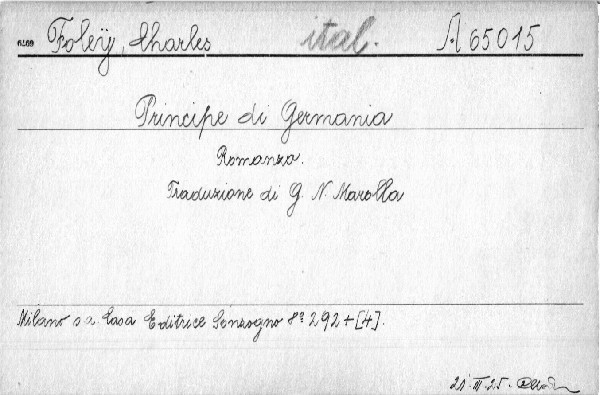 Foleÿ, Charles ital. A 65015
Principe di Germania
Romanzo.
Traduzione di G. N. Marolla
Milano s a Casa Editrice Sonzogno 8º 292+[4].
21. III. 25.